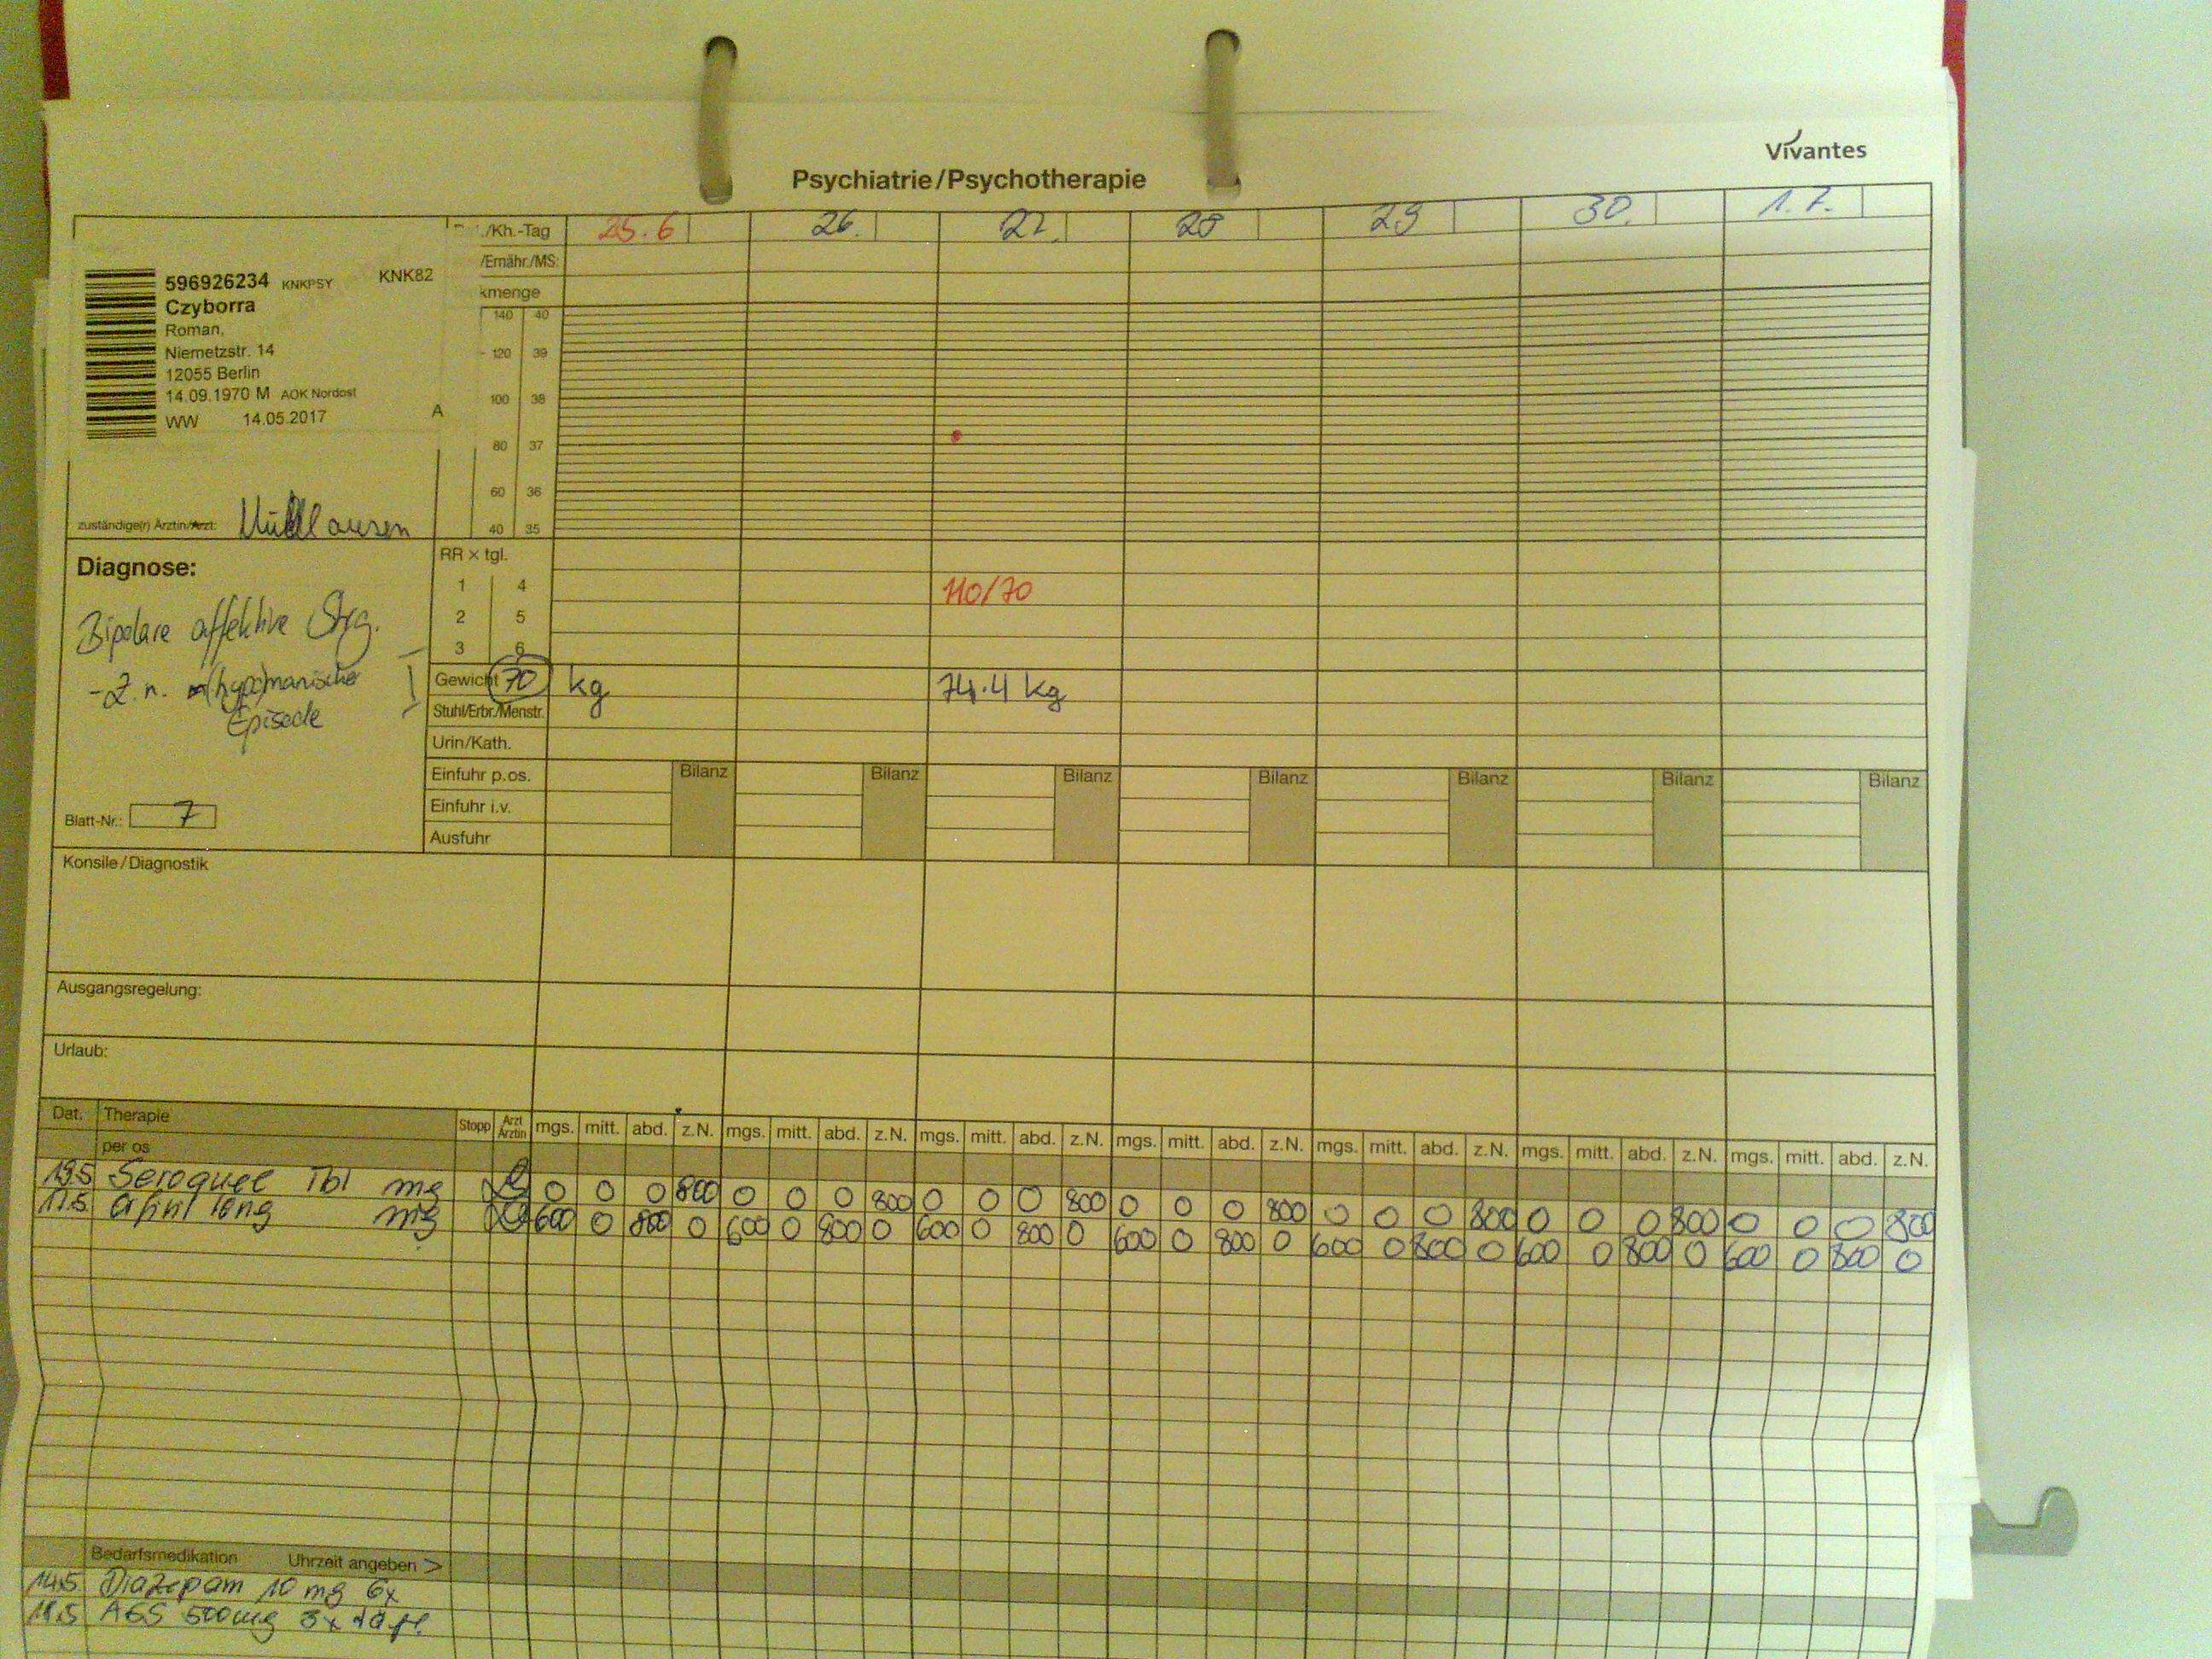 Vivantes
Psychiatrie/Psychotherapie
./Kh.-Tag 25.6 26. 27. 28 29 30. 1.7.
/Ernähr./MS:
kmenge
596926234 KNKPSY KNK82
Czyborra
Roman,
Niemetzstr. 14
12055 Berlin
14.09.1970 M AOK Nordost
WW 14.05.2017 A
140 40
120 39
100 38
80 37
60 36
40 35
zuständige(r) Ärztin/Arzt:
Diagnose:
Bipolare affektive Strg.
- Z. n. (hypo)manische
Episode
Blatt-Nr.: 7
RR × tgl.
1 4 110/70
2 5
3 6
Gewicht 70 kg 74.4 kg
Stuhl/Erbr./Menstr.
Urin/Kath.
Einfuhr p.os. Bilanz Bilanz Bilanz Bilanz Bilanz Bilanz Bilanz
Einfuhr i.v.
Ausfuhr
Konsile/Diagnostik
Ausgangsregelung:
Urlaub:
Dat. Therapie Stopp Arzt Ärztin mgs. mitt. abd. z.N. mgs. mitt. abd. z.N. mgs. mitt. abd. z.N. mgs. mitt. abd. z.N. mgs. mitt. abd. z.N. mgs. mitt. abd. z.N. mgs. mitt. abd. z.N.
per os
Seroquel Tbl mg 0 0 0 800 0 0 0 800 0 0 0 800 0 0 0 800 0 0 0 800 0 0 0 800 0 0 0 800
17.5 long mg 600 0 800 0 600 0 800 0 600 0 800 0 600 0 800 0 600 0 800 0 600 0 800 0 600 0 800 0
Bedarfsmedikation Uhrzeit angeben >
14.5 Diazepam 10 mg 6x
18.5 500mg 3x